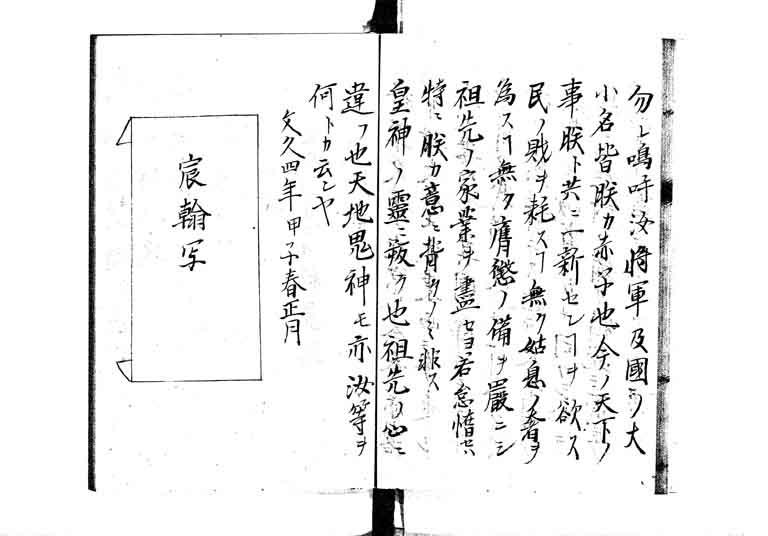 勿レ嗚呼汝将軍及國々ノ大
小名皆朕カ赤子也今ノ天下ノ
事朕ト共ニ一新センヿヲ欲ス
民ノ財ヲ耗スヿ無ク姑息ノ奢ヲ
為スヿ無ク膺懲ノ備ヲ嚴ニシ
祖先ノ家業ヲ盡セヨ若怠惰セハ
特ニ朕カ意ニ背クノミ非ス
皇神ノ靈ニ叛ク也祖先ノ心ニ
違フ也天地鬼神モ亦汝等ヲ
何トカ云ンヤ
文久四年甲子春正月
宸翰写